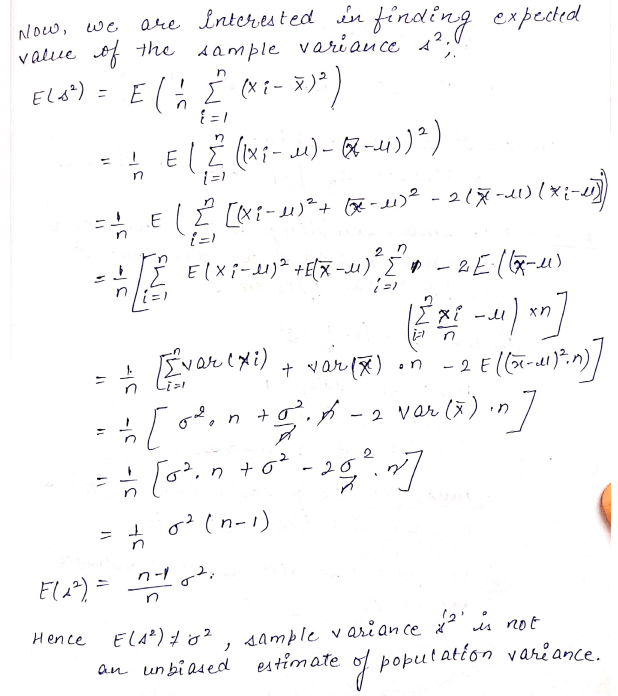 Now, we are interested in finding expected
value of the sample variance s²;
E(s²) = E ( 1/n Σ_{i=1}^{n} (xi - x̄)² )
= 1/n E ( Σ_{i=1}^{n} ((xi - μ) - (x̄ - μ))² )
= 1/n E ( Σ_{i=1}^{n} [(xi - μ)² + (x̄ - μ)² - 2(x̄ - μ)(xi - μ)] )
= 1/n [ Σ_{i=1}^{n} E(xi - μ)² + E(x̄ - μ)² Σ_{i=1}^{n} - 2E((x̄ - μ)
( Σ_{i=1}^{n} xi/n - μ ) × n ]
= 1/n [ Σ_{i=1}^{n} var(xi) + var(x̄) · n - 2 E((x̄ - μ)² · n) ]
= 1/n [ σ² · n + σ²/n · n - 2 var(x̄) · n ]
= 1/n [ σ² · n + σ² - 2σ²/n · n ]
= 1/n σ² (n-1)
E(s²) = n-1/n σ².
Hence E(s²) ≠ σ², sample variance 's²' is not
an unbiased estimate of population variance.